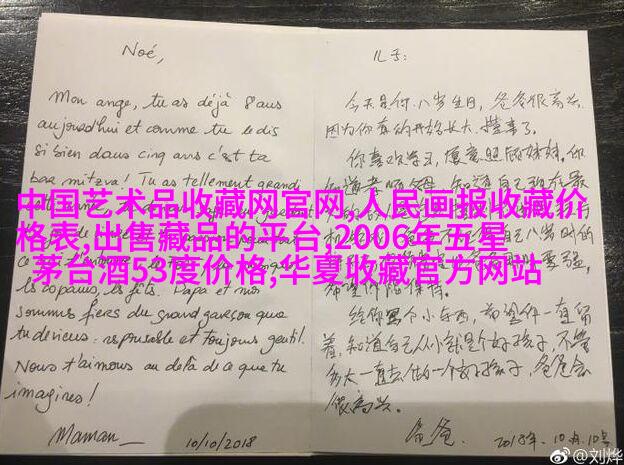 Noé,
Mon ange, tu as déjà 8 ans
aujourd'hui et comme tu le dis
si bien dans cinq ans c'est ta
bar mitzva! Tu as tellement grandi
中国艺术品收藏网官网,人民画报收藏价
格表,出售藏品的平台,2006年五星
茅台酒53度价格,华夏收藏官方网站
les copains, les fêtes. Papa et moi
sommes fiers du grand garçon que
tu deviens: responsable et toujours gentil.
Nous t'aimons au delà de ce que tu
imagines!
Maman
10/10/2018
儿子:
今天是你八岁生日,爸爸很高兴
因为你真的开始长大,懂事了。
你喜欢学习,愿意照顾妹妹,你
希望你能保持。
给你写个小东西,希望你一直留
着,知道自己从小就是个好孩子,不管
多大一直去做一个好孩子,爸爸会
很高兴。
爸爸.
2018年.10月.10号
@刘烨